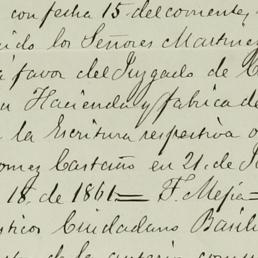 con fecha 15 del corriente,
ido los Señores Martinez
á favor del Juzgado de C
su Hacienda y fabrica de
la Escritura respectiva o
omez Castaño en 21. de J
18. de 1861.= F. Mejia=
sticos Ciudadano Basili